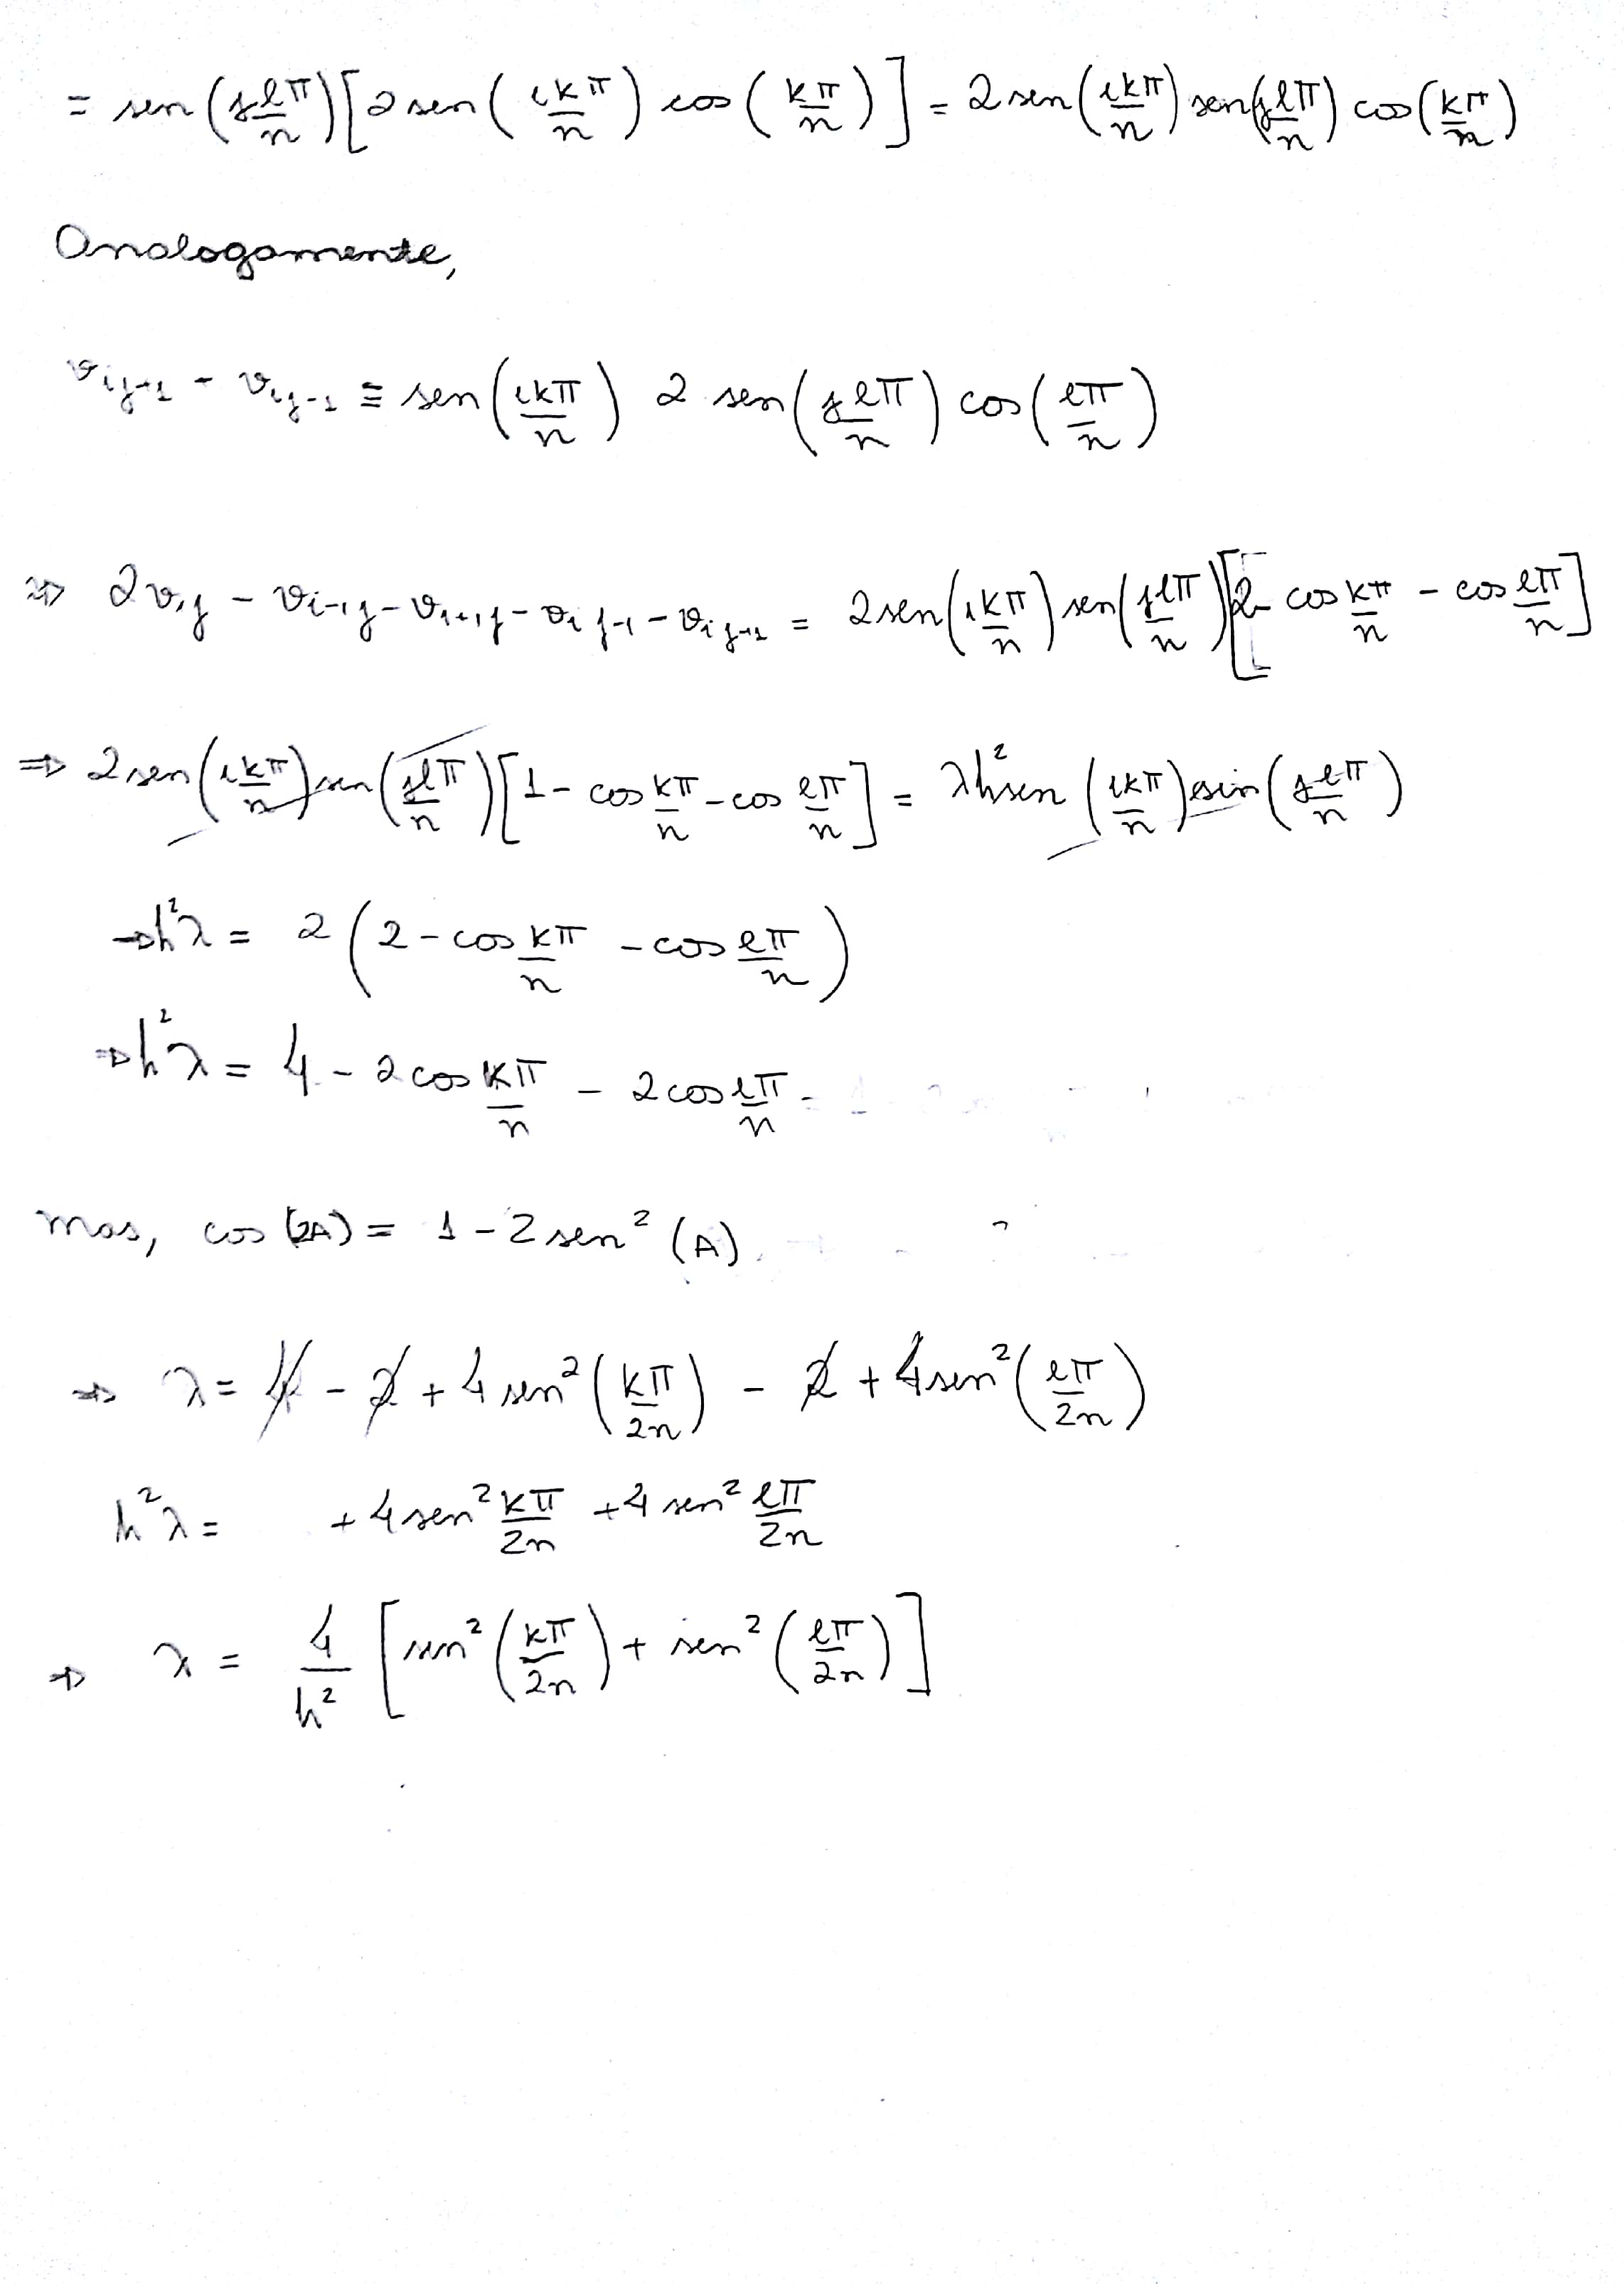 = sen (jlπ/n) [2 sen (ikπ/n) cos (kπ/n)] = 2 sen (ikπ/n) sen (jlπ/n) cos (kπ/n)
Analogamente,
v_{ij+1} - v_{ij-1} = sen (ikπ/n) 2 sen (jlπ/n) cos (lπ/n)
⇒ 2v_{ij} - v_{i-1j} - v_{i+1j} - v_{ij-1} - v_{ij+1} = 2sen (ikπ/n) sen (jlπ/n) [2 - cos kπ/n - cos lπ/n]
⇒ 2sen (ikπ/n) sen (jlπ/n) [1 - cos kπ/n - cos lπ/n] = λh² sen (ikπ/n) sin (jlπ/n)
→ h²λ = 2 (2 - cos kπ/n - cos lπ/n)
⇒ h²λ = 4 - 2cos kπ/n - 2cos lπ/n
mas, cos (2A) = 1 - 2 sen² (A)
⇒ λ = 4 - 2 + 4 sen² (kπ/2n) - 2 + 4 sen² (lπ/2n)
h²λ = + 4 sen² kπ/2n + 4 sen² lπ/2n
⇒ λ = 4/h² [sen² (kπ/2n) + sen² (lπ/2n)]